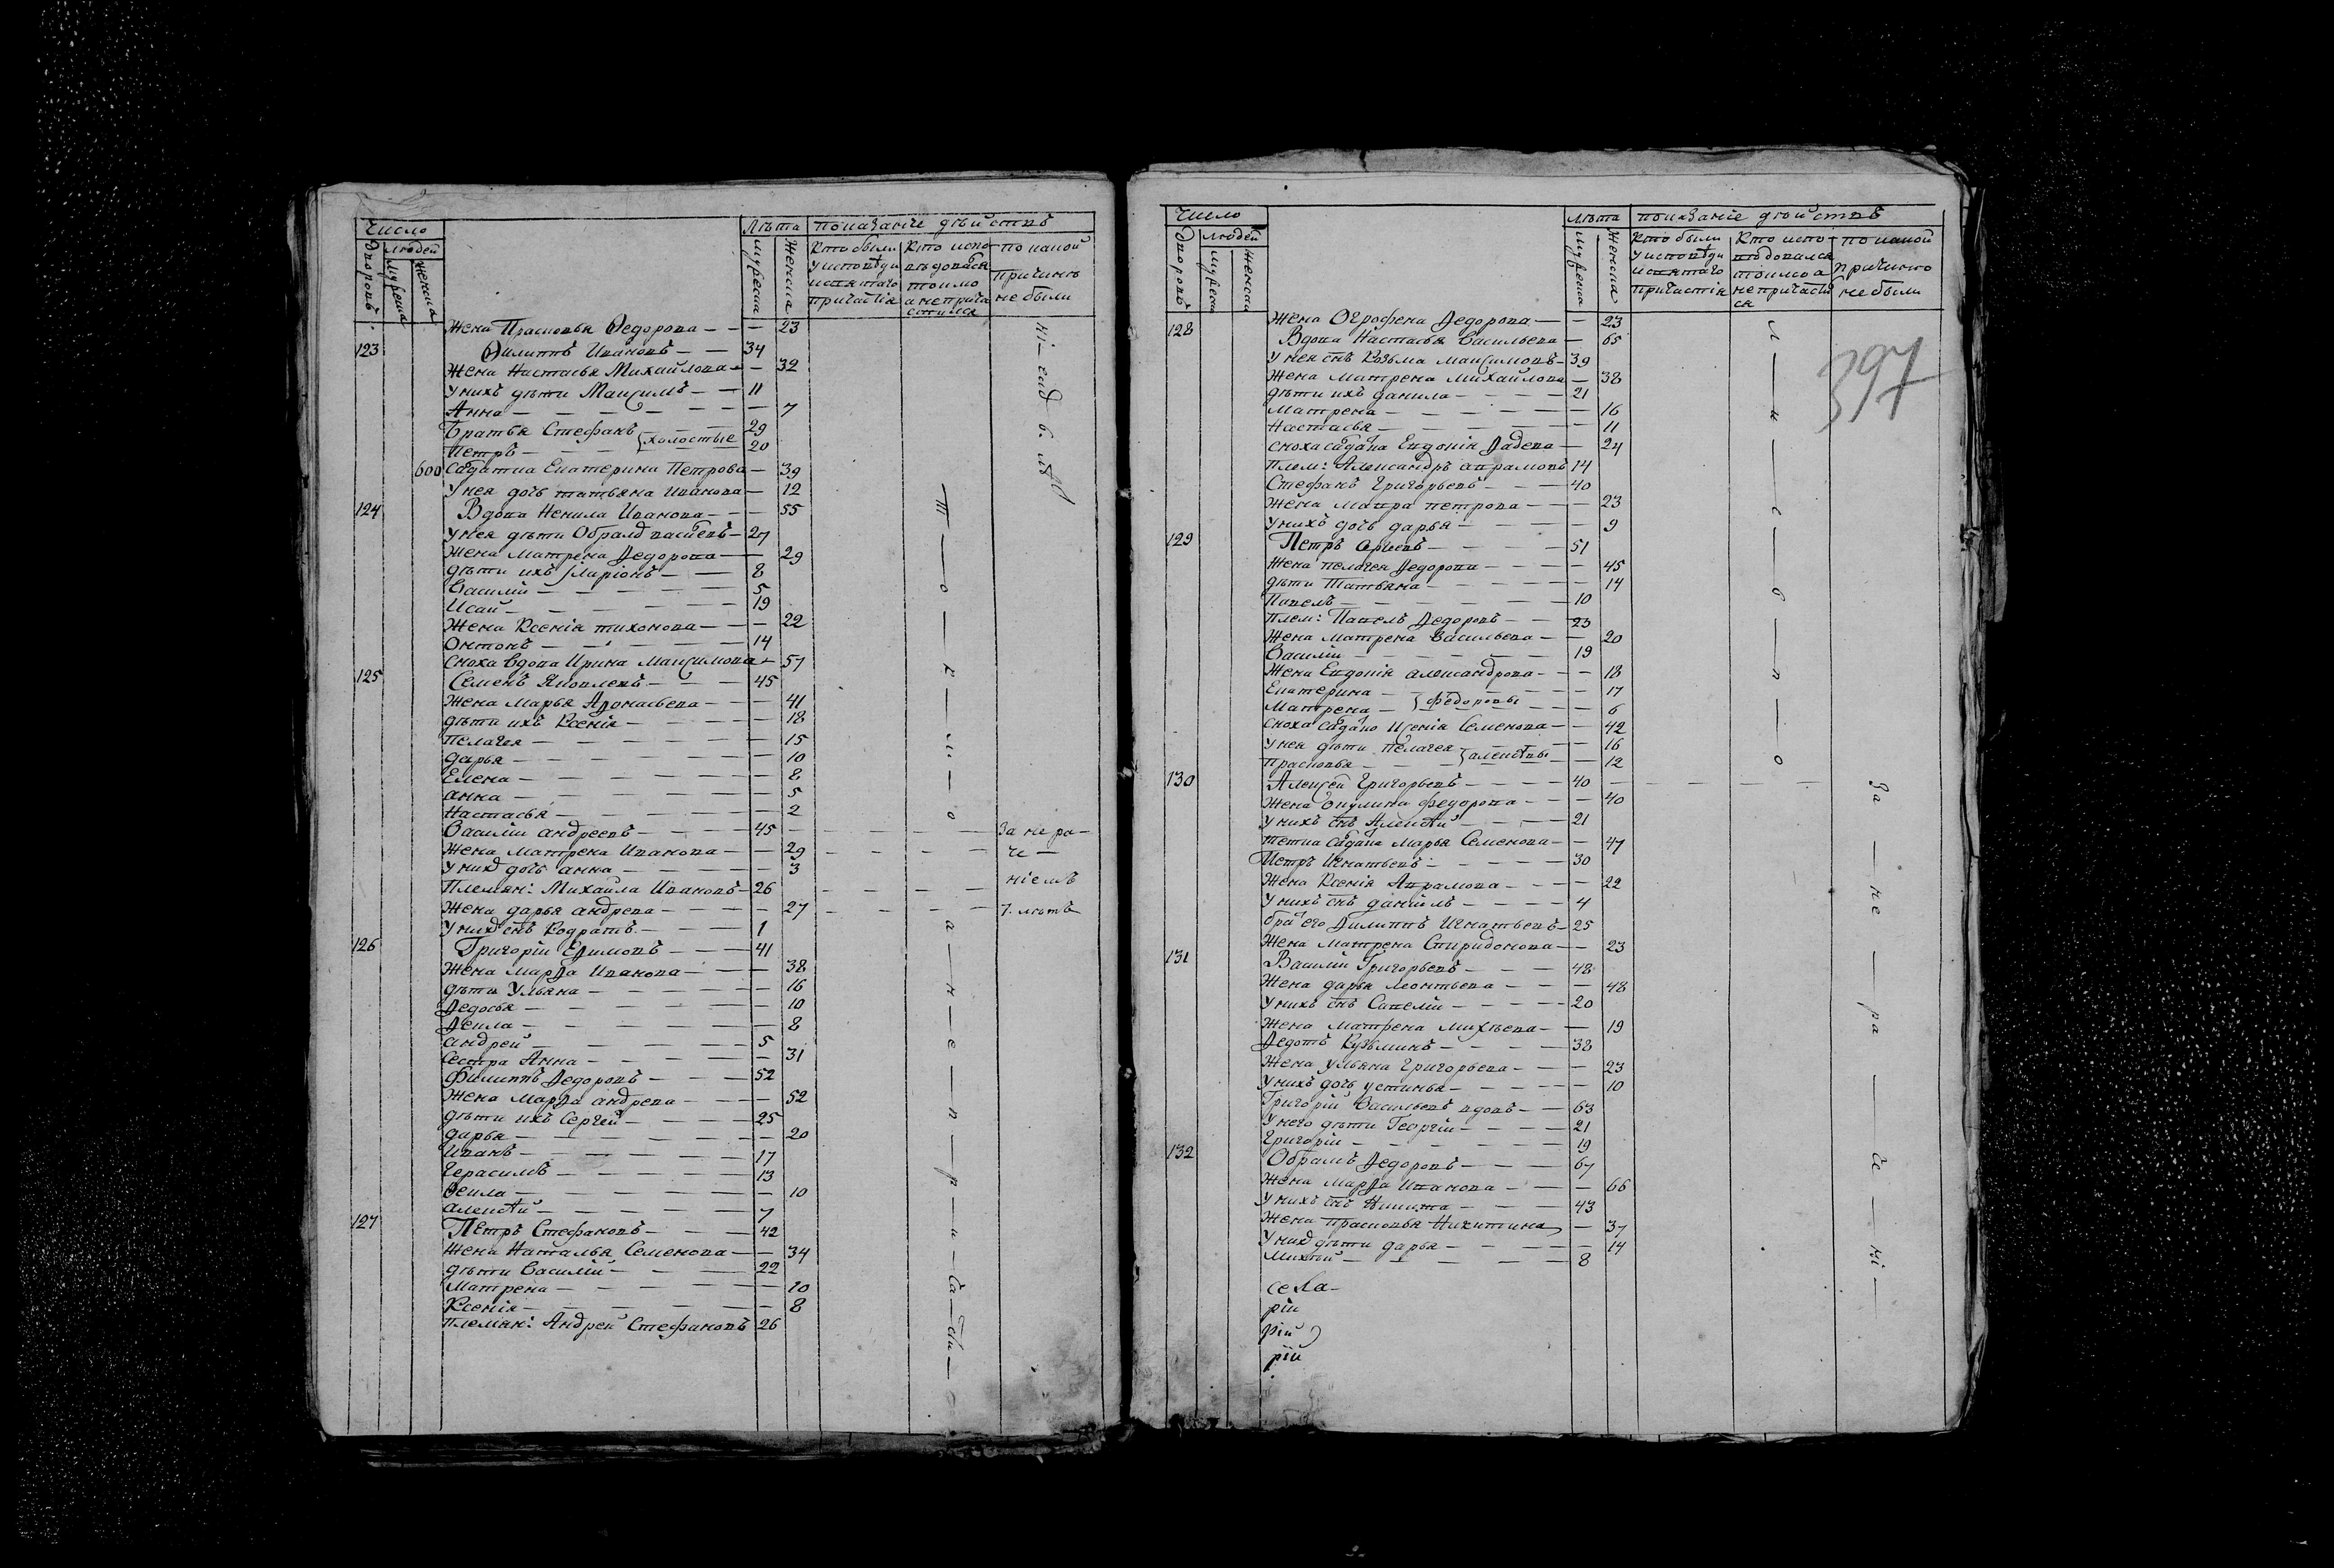 Число
Лѣта показанїе дѣйствъ
Дворовъ людей
мужеска женска
мужеска Женска
Кто были у исповѣди и святаго причастїя
Кто исповѣдовася токмо а не причастился
по какой причинѣ не были
Жена Прасковья Ѳедорова — 23
123 Ѳилиппъ Ивановъ — 34
Жена Настасья Михайлова — 32
У нихъ дѣти Максимъ — 11
Анна — 7
Братья Стефанъ 29
Петръ 20 холостые
600 С※датка Екатерина Петрова — 39
У нея дочь татьяна Иванова — 12
124 Вдова Ненила Иванова — 55
У нея дѣти — 27
Жена Матрена Ѳедорова — 29
дѣти ихъ Иларіонъ — 8
Василій — 5
Исай — 19
Жена Ксенія тихонова — 22
Онтонъ — 14
сноха вдова Ирина Максимова — 57
125 Семенъ Яковлевъ — 45
Жена Марья — 41
дѣти ихъ Ксенія — 18
Пелагея — 15
дарья — 10
Елена — 8
анна — 5
Настасья — 2
Василій андреевъ — 45 — За не ра-
Жена Матрена Иванова — 29 — че —
У них дочь анна — 3
Племян: Михайла Ивановъ — 26 — нїемъ
Жена дарья андрева — 27 — 7. лѣтъ
У них снъ Кодратъ — 1
126 Григорій Ефимовъ — 41
Жена Марѳа Иванова — 38
дѣти Ульяна — 16
Ѳедосья — 10
Ѳекла — 8
андрей — 5
Сестра Анна — 31
Филиппъ Ѳедоровъ — 52
Жена Марѳа андрева — 52
дѣти ихъ Сергей — 25
дарья — 20
Иванъ — 17
Герасимъ — 13
Ѳекла — 10
алексѣй — 7
127 Петръ Стефановъ — 42
Жена Наталья Семенова — 34
дѣти Василій — 22
Матрена — 10
Ксенія — 8
племян: Андрей Стефановъ 26
т — о — к — м — о
а — н — е — п — р — и — ча — сти —
Число
Лѣта показанїе дѣйствъ
Дворовъ людей
мужеска женска
мужеска Женска
Кто были у исповѣди и святаго причастїя
Кто исповѣдовался токмо а не причастился
по какой причинѣ не были
397
Жена Огрофена Ѳедорова — 23
128 Вдова Настасья Васильева — 65
У нея снъ Козьма максимовъ — 39
Жена матрена михайлова — 38
дѣти ихъ данила — 21
Матрена — 16
Настасья — 11
сноха Евдокія — 24
Плем: Александръ аврамовъ 14
Стефанъ Григорьевъ — 40
Жена Мавра петрова — 23
У нихъ дочь дарья — 9
129 Петръ — 51
Жена пелагея Ѳедорова — 45
дѣти Татьяна — 14
Павелъ — 10
Плем: Павелъ Ѳедоровъ — 23
Жена Матрена Васильева — 20
Василій — 19
Жена Евдокія александрова — 18
Екатерина — 17
Матрена — 6 федоровы
сноха Семенова — 42
У нея дѣти пелагея — 16
Прасковья — 12 алексѣевы
130 Алексей Григорьевъ — 40
Жена Окулина федорова — 40
У нихъ снъ Алексѣй — 21
тетка Марья Семенова — 47
Петръ Игнатьевъ — 30
Жена Ксенія Аврамова — 22
У нихъ снъ данїилъ — 4
братъ его Ѳилиппъ Игнатьевъ — 25
Жена Матрена Спиридонова — 23
131 Василій Григорьевъ — 48
Жена дарья леонтьева — 48
У нихъ снъ Савелїй — 20
Жена Матрена михѣева — 19
Ѳедотъ Кузьминъ — 38
Жена ульяна Григорьева — 23
У нихъ дочь устинья — 10
Григорій Васильевъ вдовъ — 63
У него дѣти Георгій — 21
Григорій — 19
132 Обрамъ Ѳедоровъ — 67
Жена Марѳа Иванова — 66
У нихъ снъ Никита — 43
Жена прасковья Никитина — 37
У них дѣти дарья — 14
Михѣй — 8
л — и — с — о — в — о
За — не — ра — че — нї —
рїи
рїй
рїй